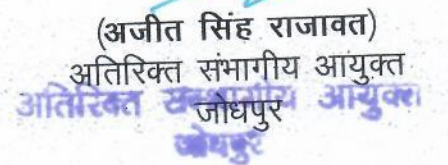 (अजीत सिंह राजावत)
अतिरिक्त संभागीय आयुक्त
अतिरिक्त संभागीय आयुक्त
जोधपुर
जोधपुर